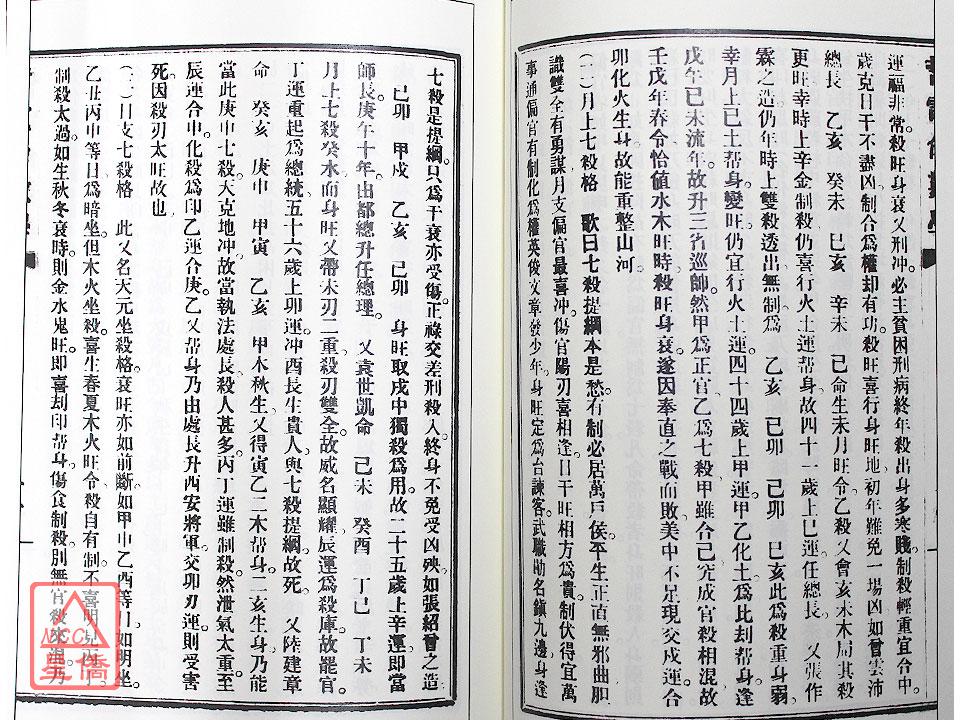 運福非常殺旺身衰又刑冲必主貧困刑病終年殺出身多寒賤制殺輕重宜台中
歲克日干不盡凶制合爲權却有功殺旺喜行身旺地初年難免一場凶如曾雲沛
總長　乙亥　癸未　己亥　辛未　己命生未月旺令乙殺又會亥未木局其殺
更旺幸時上辛金制殺仍喜行火土運帮身故四十一歲上巳運任總長　又張作
霖之造仍年時上雙殺透出無制爲　乙亥　己卯　己卯　乙亥此爲殺重身弱
幸月上己土帮身變旺仍宜行火土運四十四歲上甲運甲乙化土爲比刦帮身逢
戊午己未流年故升三省巡帥然甲爲正官乙爲七殺甲雖合己究成官殺相混故
壬戊年春令恰値水木旺時殺旺身衰遂因奉直之戰而敗美中不足現交戍運合
卯化火生身故能重整山河
(一)月上七殺格　歌曰七殺提綱本是愁有制必居萬戸侯平生正直無邪曲胆
識雙全有勇謀月支偏官最喜冲傷官陽刃喜相逢日干旺相方爲貴制伏得宜萬
事通偏官有制化爲權英俊文章發少年身旺定爲台諫客武職助名鎭九邊身逢
七殺是提綱只爲干衰亦受傷正祿交差刑殺入終身不免受凶殃如張紹曾之造
己卯　甲戍　乙亥　己卯　身旺取戍中獨殺爲用故二十五歲上辛運即當
師長庚午十年由都總升任總理　又袁世凱命　己未　癸酉　丁巳　丁未
月上七殺癸水而身旺又帶未刃二重殺刃雙全故威名顯耀辰運爲殺庫故罷官
丁運重起爲總統五十六歲上卯運冲酉長生貴人與七殺提綱故死　又陸建章
命　癸亥　庚申　甲寅　乙亥　甲木秋生又得寅乙二木帮身二亥生身乃能
當此庚申七殺天克地冲故當執法處長殺人甚多丙丁運雖制殺然泄氣太重至
辰運合申化殺爲印乙運合庚乙又帮身乃由處長升西安將軍交卯刃運則受害
死因殺刃太旺故也
(二)日支七殺格　此又名天元坐殺格衰旺亦如前斷如甲申乙酉等日如明坐
乙丑丙申等日爲暗坐但木火坐殺喜生春夏木火旺令殺自有制不喜明見丙丁
制殺太過如生秋冬衰時則金水鬼旺即喜刦印帮身傷食制殺別無官殺來混乃
NCC
星僑